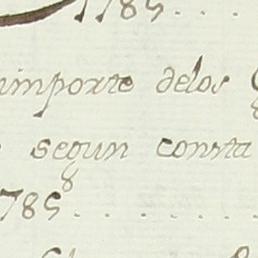 1785....
importe delos
segun consta
1785........